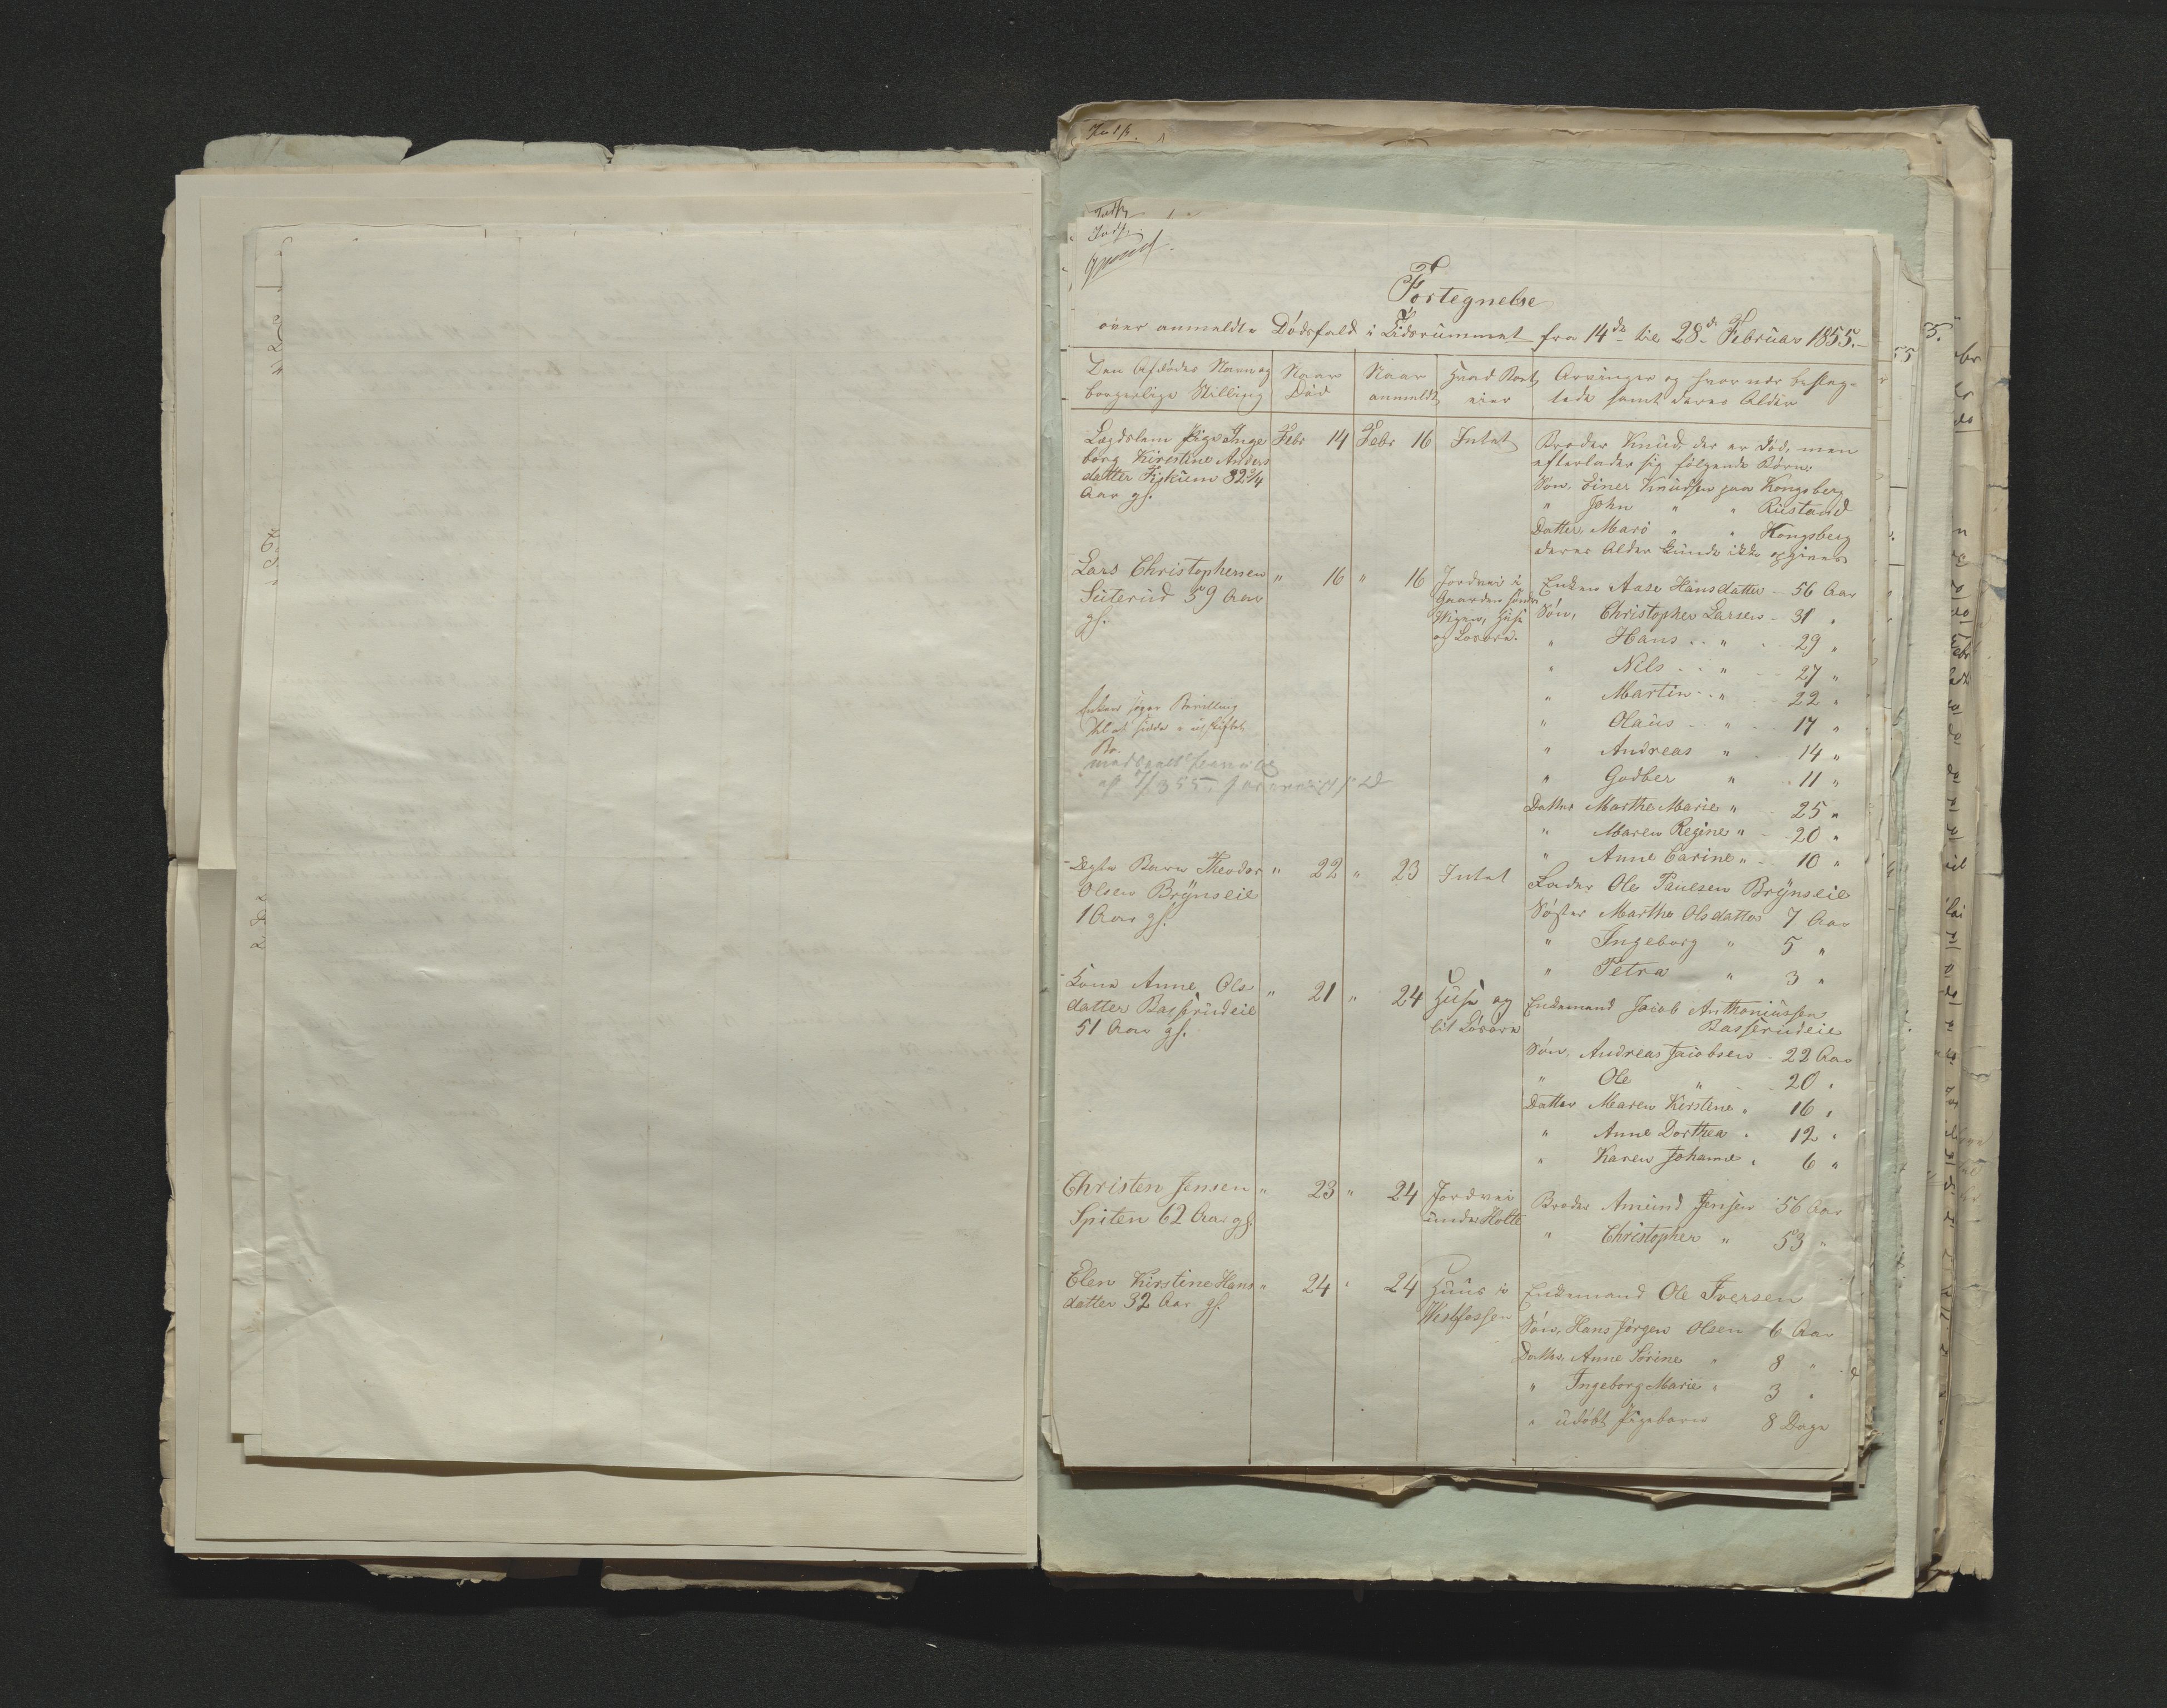 Fortegnelse
over anmeldte Dødsfald i Tidsrummet fra 14de til 28de Februar 1855.
Den Afdødes Navn og borgerlige Stilling
Naar Død
Naar anmeldt
Hvad Boet eier
Arvinger og hvor nær beslægtede samt deres Alder
Lægdslem Pige Inge
borg Kirstine Anders
datter Fiskum 82 3/4
Aar gl.
Febr 14
Febr 16
Intet
Broder Knud, der er død, men
efterlader sig følgende Børn:
Søn, Einer Knudsen paa Kongsberg
" John " " Rustand
Datter, Mari " " Kongsberg
deres Alder kunde ikke opgives
Lars Christophersen
Suterud 59 Aar
gl.
" 16
" 16
Jordvei i
Gaarden
Wigen, Huse
og Løsøre.
Enken Aase Hansdatter - 56 Aar
Søn, Christopher Larsen - 31 "
" Hans " 29 "
" Nils " 27 "
" Martin " 22 "
" Olaus " 17 "
" Andreas " 14 "
" Godber " 11 "
Datter Marthe Marie " 25 "
" Maren Regine " 20 "
" Anne Carine " 10 "
Enken søger Bevilling
til at sidde i uskiftet
Bo.
Theodor
Olsen Brynseie
1 Aar gl.
" 22
" 23
Intet
Fader Ole Paulsen Brynseie
Søster Marthe Olsdatter 7 Aar
" Ingeborg " 5 "
" Petra " 3 "
Kone Anne Ols
datter Basserudeie
51 Aar gl.
" 21
" 24
Huse og
lit Løsøre
Enkemand Jacob Anthoniussen
Basserudeie
Søn, Andreas Jacobsen - 22 Aar
" Ole " 20 "
Datter Maren Kirstine " 16 "
" Anne Dorthea " 12 "
" Karen Johanne " 6 "
Christen Jensen
Spiten 62 Aar gl.
" 23
" 24
Jordvei
under Holte
Broder Amund Jensen 56 Aar
" Christopher " 53 "
Elen Kirstine Hans
datter 32 Aar gl.
" 24
" 24
Huus i
Westfossen
Enkemand Ole Iversen
Søn, Hans Jørgen Olsen 6 Aar
Datter, Anne Sørine " 8 "
" Ingeborg Marie " 3 "
" udøbt Pigebarn 8 Dage